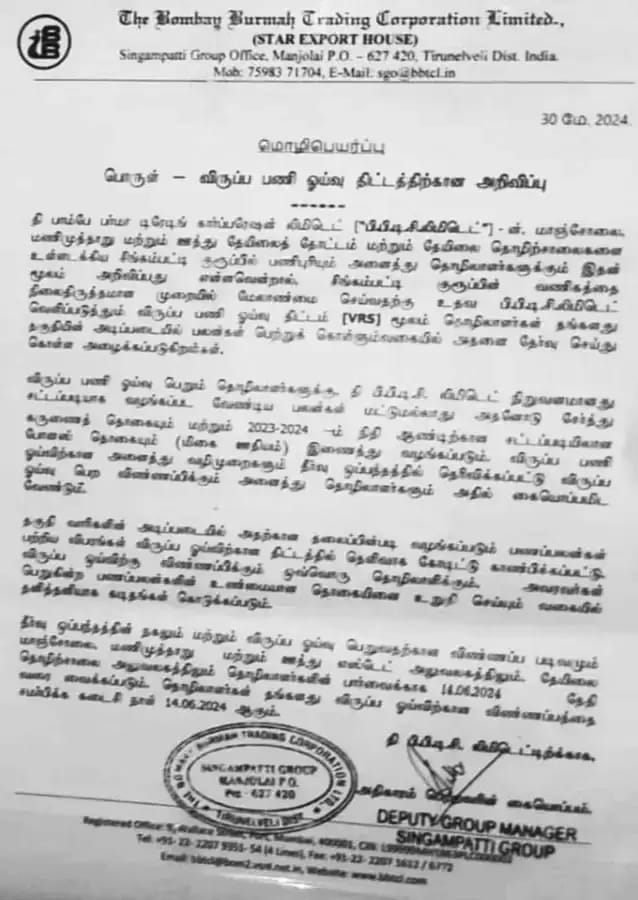 The Bombay Burmah Trading Corporation Limited.,
(STAR EXPORT HOUSE)
Singampatti Group Office, Manjolai P.O. - 627 420, Tirunelveli Dist. India.
Mob: 75983 71704, E-Mail. sgo@bbtcl.in
30 மே, 2024.
மொழிபெயர்ப்பு
பொருள் – விருப்ப பணி ஓய்வு திட்டத்திற்கான அறிவிப்பு
தி பாம்பே பர்மா டிரேடிங் கார்ப்பரேஷன் லிமிடெட் ["பி.பி.டி.சி.லிமிடெட்"] - ன், மாஞ்சோலை,
மணிமுத்தாறு மற்றும் ஊத்து தேயிலைத் தோட்டம் மற்றும் தேயிலை தொழிற்சாலைகளை
உள்ளடக்கிய சிங்கம்பட்டி குரூப்பில் பணிபுரியும் அனைத்து தொழிலாளர்களுக்கும் இதன்
மூலம் அறிவிப்பது என்னவென்றால், சிங்கம்பட்டி குரூப்பின் வணிகத்தை
நிலைதிருத்தமான முறையில் மேலாண்மை செய்வதற்கு உதவ பி.பி.டி.சி.லிமிடெட்
வெளிப்படுத்தும் விருப்ப பணி ஓய்வு திட்டம் [VRS] மூலம் தொழிலாளர்கள் தங்களது
தகுதியின் அடிப்படையில் பலன்கள் பெற்றுக் கொள்ளும்வகையில் அதனை தேர்வு செய்து
கொள்ள அழைக்கப்படுகிறார்கள்.
விருப்ப பணி ஓய்வு பெறும் தொழிலாளர்களுக்கு, தி பி.பி.டி.சி. லிமிடெட் நிறுவனமானது
சட்டப்படியாக வழங்கப்பட வேண்டிய பலன்கள் மட்டுமல்லாது அதனோடு சேர்த்து
கருணைத் தொகையும் மற்றும் 2023-2024 –ம் நிதி ஆண்டிற்கான சட்டப்படியிலான
போனஸ் தொகையும் (மிகை ஊதியம்) இணைத்து வழங்கப்படும். விருப்ப பணி
ஓய்விற்கான அனைத்து வழிமுறைகளும் தீர்வு ஒப்பந்தத்தில் தெரிவிக்கப்பட்டு விருப்ப
ஓய்வு பெற விண்ணப்பிக்கும் அனைத்து தொழிலாளர்களும் அதில் கையொப்பமிட
வேண்டும்.
தகுதி வாரிகளின் அடிப்படையில் அதற்கான தலைப்பின்படி வழங்கப்படும் பணப்பலன்கள்
பற்றிய விபரங்கள் விருப்ப ஓய்விற்கான திட்டத்தில் தெளிவாக கோடிட்டு காண்பிக்கப்பட்டு,
விருப்ப ஓய்விற்கு விண்ணப்பிக்கும் ஒவ்வொரு தொழிலாளிக்கும், அவரவர்கள்
பெறுகின்ற பணப்பலன்களின் உண்மையான தொகையினை உறுதி செய்யும் வகையில்
தனித்தனியாக கடிதங்கள் கொடுக்கப்படும்.
தீர்வு ஒப்பந்தத்தின் நகலும் மற்றும் விருப்ப ஓய்வு பெறுவதற்கான விண்ணப்ப படிவமும்
மாஞ்சோலை, மணிமுத்தாறு மற்றும் ஊத்து எஸ்டேட் அலுவலகத்திலும், தேயிலை
தொழிற்சாலை அலுவலகத்திலும் தொழிலாளர்களின் பார்வைக்காக 14.06.2024 தேதி
வரை வைக்கப்படும். தொழிலாளர்கள் தங்களது விருப்ப ஓய்விற்கான விண்ணப்பத்தை
சமர்பிக்க கடைசி நாள் 14.06.2024 ஆகும்.
தி பி.பி.டி.சி. லிமிடெட்டிற்காக,
THE BOMBAY BURMAH TRADING CORPORATION LTD.
SINGAMPATTI GROUP
MANJOLAI P.O.
PIN - 627 420
TIRUNELVELI DIST.
அதிகாரம் கையொப்பம்.
DEPUTY GROUP MANAGER
SINGAMPATTI GROUP
Registered Office: 9, Wallace Street, Fort, Mumbai, 400001, CIN:
Tel: +91- 22- 2207 9351- 54 (4 Lines), Fax: +91- 22- 2207 1612 / 6772
Email: bbtcl@bom2.vsnl.net.in, Website: www.bbtcl.com